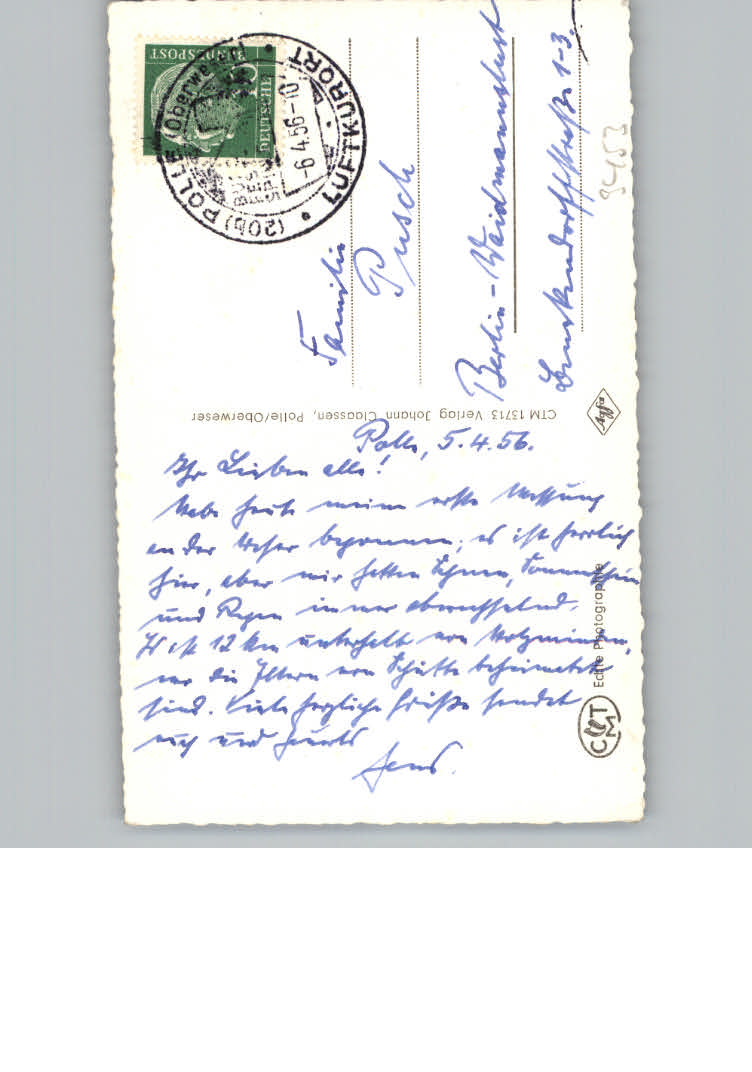 BUNDESPOST
DEUTSCHE
(20b) POLLE (Oberweser)
LUFTKURORT
-6.4.56-10
Familie
Pusch
Berlin-Waidmannslust
1-3.
9453
CTM 13713 Verlag Johann Claassen, Polle/Oberweser
Agfa
Polle, 5.4.56.
Ihr Lieben alle!
Habe heute meine erste
an der Weser begonnen, es ist herrlich
hier, aber wir hatten Schnee, Sonnenschein
und Regen immer abwechselnd.
Es ist 12 km unterhalb von Holzminden,
wo die Eltern von Schütte beheimatet
sind. Viele herzliche Grüße sendet
Euch und Hans
Echte Photographie
CMT